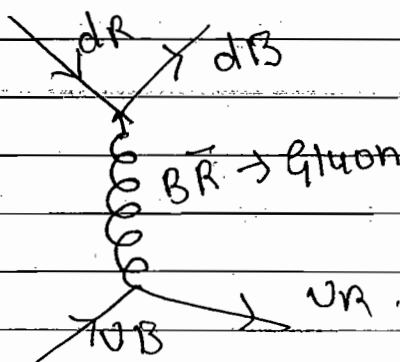 dR
dB
BR̄ → Gluon
UR.
UB